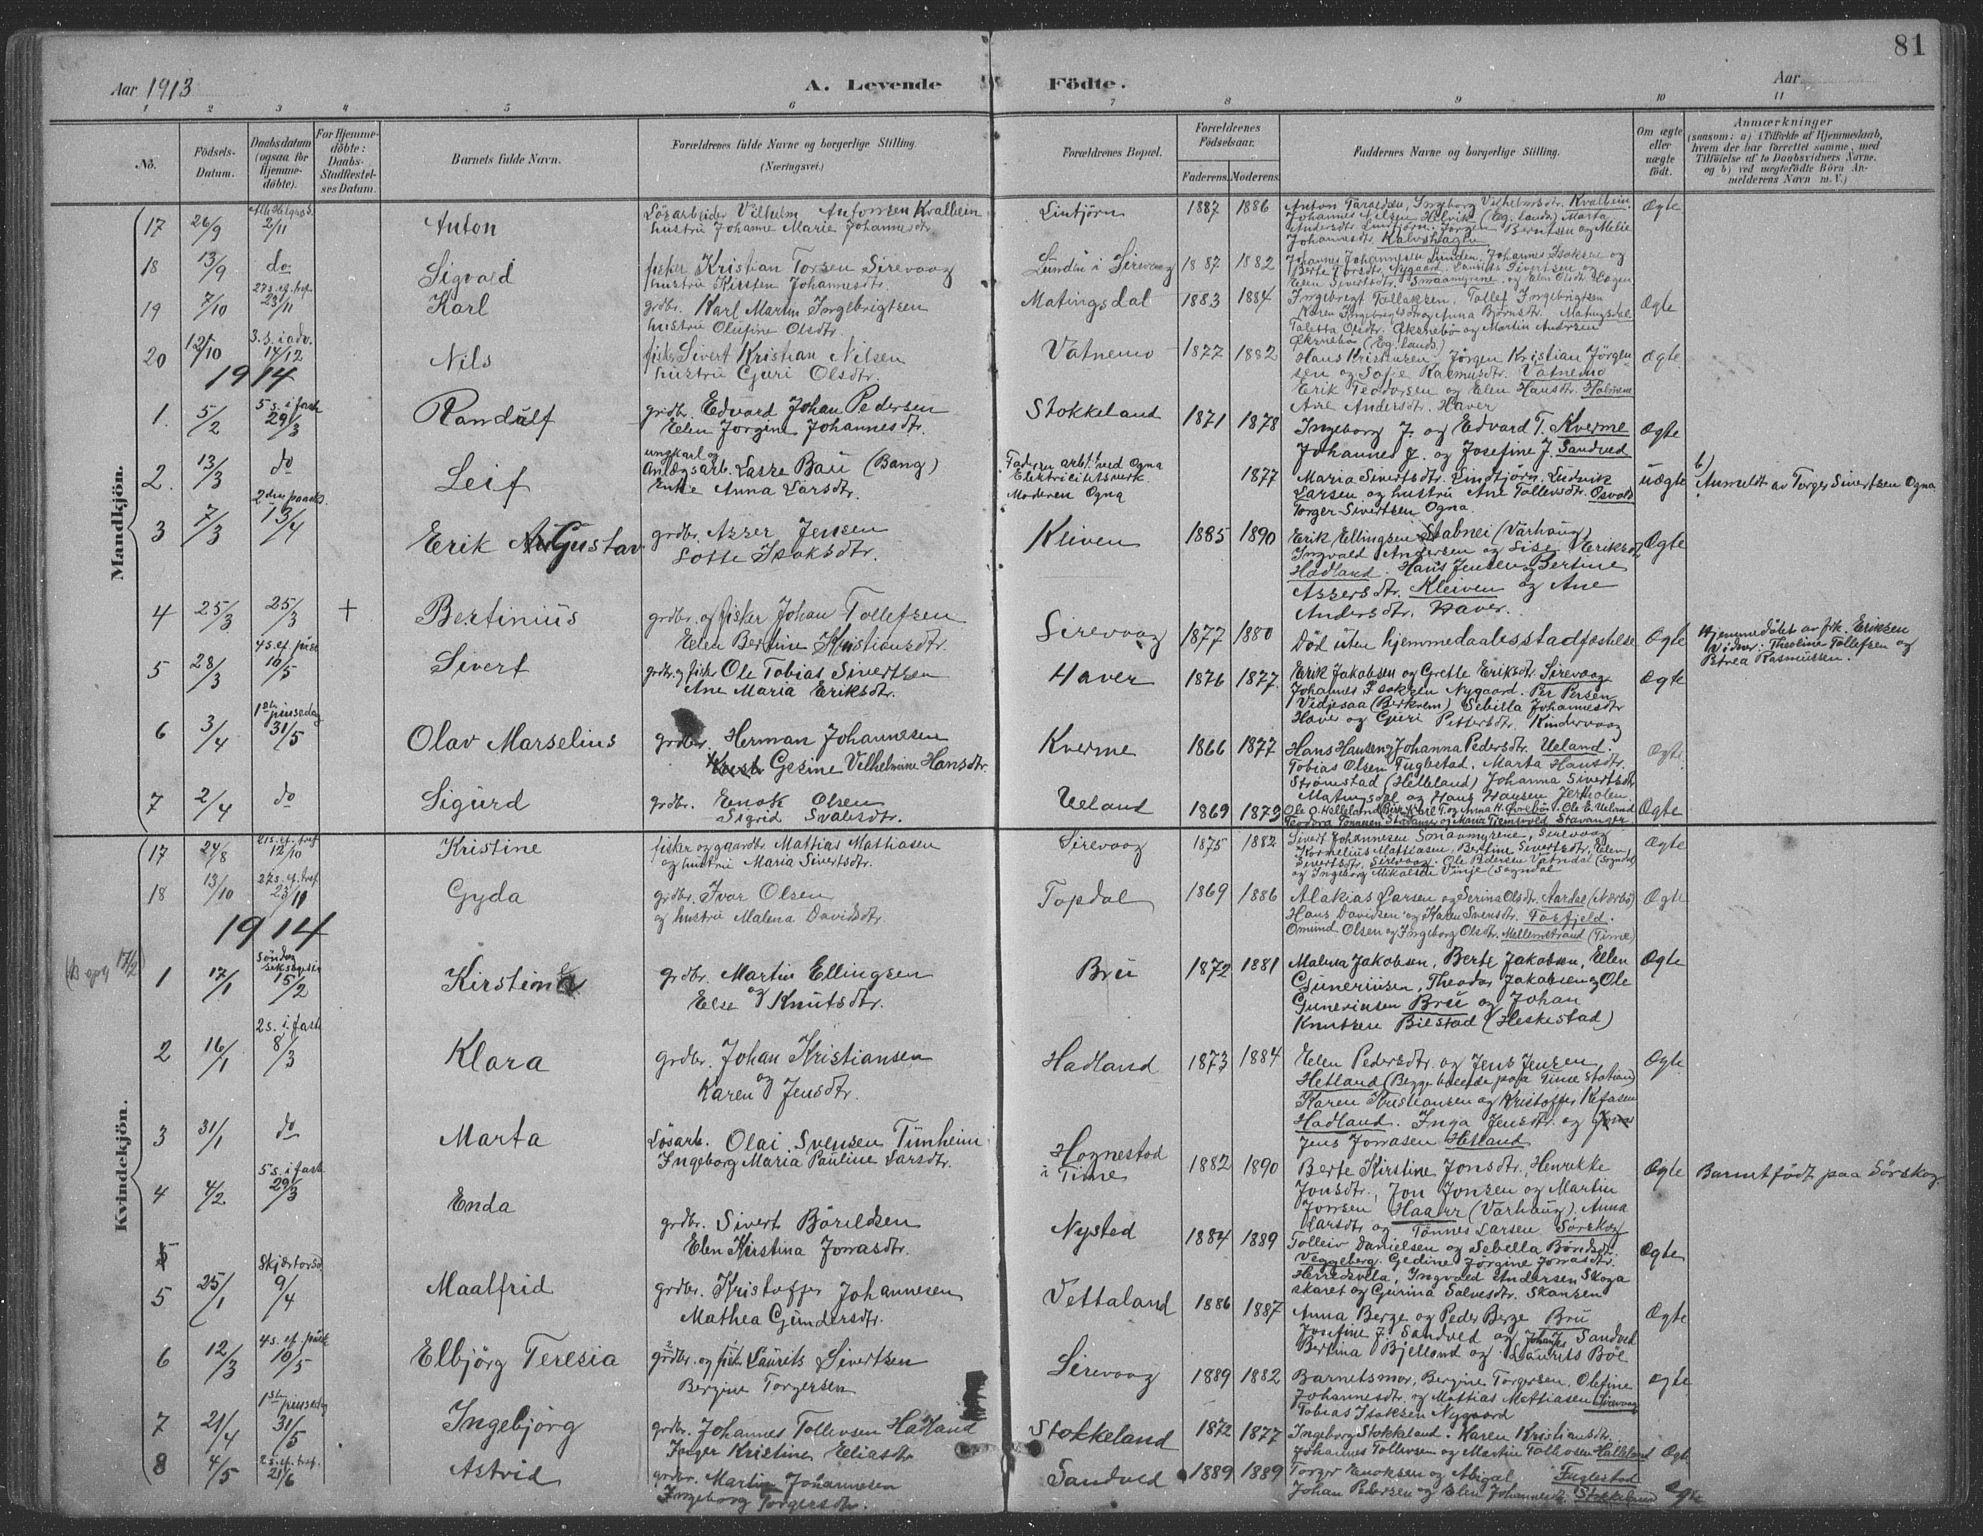 81
Aar 1913
A. Levende Födte.
Aar
1 2 3 4 5 6 7 8 9 10 11
No.
Födsels-Datum.
Daabsdatum (ogsaa for Hjemmedöbte).
For Hjemmedöbte: Daabs-Stadfæstelses Datum.
Barnets fulde Navn.
Forældrenes fulde Navne og borgerlige Stilling. (Næringsvei.)
Forældrenes Bopæl.
Forældrenes Födselsaar.
Faderens. Moderens.
Faddernes Navne og borgerlige Stilling.
Om ægte eller uægte födt.
Anmærkninger
(saasom: a) i Tilfælde af Hjemmedaab, hvem der har forrettet samme, med Tilföielse af to Daabsvidners Navne, og b) ved uægtefödte Börn Anmelderens Navn m. V.)
Mandkjön.
17 26/9 2/11 Anton
Lösarbeider Vilhelm Antonsen Kvalbein
hustru Johanne Marie Johannesdtr
Lintjörn 1887 1886
Anton Taraldsen, Ingeborg Vilhelmsdtr. Kvalbein.
Johannes Nilsen Helvik (Eg. lands) Marta
Andersdtr Lindtjörn. Jörgen Berntsen og Malie
Johannesdtr Kalvshagen
Ægte
18 13/9 do. Sigvard
fisker Kristian Torsen Sirevaag
hustru Kirsten Johannesdtr.
Lunden i Sirevaag 1887 1882
Johannes Johannesen Lunden, Johannes Isaksen og
Berte Torsdtr. Nygaard. Laurits Sivertsen og
Elen Sivertsdtr. Smaamyrene, og Elen Olsdtr
19 7/10 27 s. ef. tref. 23/11 Karl
grdbr. Karl Martin Ingebrigtsen
hustru Olufine Olsdtr.
Matingsdal 1883 1884
Ingebregt Tollaksen, Tollef Ingebrigtsen
Karen Ingebregtsdtr og Anna Bjørnsdtr. Matingsdal
Taletta Olsdtr. Økrnebö og Martin Andersen
Økrnebö (Eg. lands.)
Ægte
20 12/10 3. s. i adv. 14/12 Nils
fisker Sivert Kristian Nilsen
hustru Guri Olsdtr.
Vatnemo 1877 1882
Hans Kristensen, Jørgen Kristian Jørgen-
sen og Sofie Rasmusdtr. Vatnemo
Erik Teodorsen og Elen Hansdtr. Holmen
Ane Andersdtr. Haver
ægte
1914
1. 5/2 5 s. i fast 29/3 Randulf
grdbr. Edvard Johan Pedersen
Elen Jorgine Johannesdtr.
Stokkeland 1871 1878
Ingeborg J. og Edvard T. Kverme
Johannes J. og Josefine J. Sandved
Ægte
2. 13/3 do Leif
ungkarl og
Anlægsarb. Lasse Bau (Bang)
Enke Anna Larsdtr.
Faderen arb. ved Ogna
Elektricitetsverk.
Moderen Ogna
1877
Maria Sivertsdtr. Lindtjörn, Ludvik
Larsen og hustru Ane Tollevsdtr. Osvald
Torger Sivertsen Ogna.
uægte
b) Anmeldt av Torger Sivertsen Ogna
3 7/3 2den paaske 13/4 Erik Gustav
grdbr. Asser Jensen
Lotte Isaksdtr.
Kleven 1885 1890
Erik Ellingsen Stabnei (Varhaug)
Ingvald Andersen og Lise Eriksdtr
Hadland. Hans Jensen og Bertine
Assersdtr. Kleiven og Ane
Andersdtr. Haver.
Ægte
4 25/3 25/3 + Bertinius
grdbr. og fisker Johan Tollefsen
Elen Bertine Kristiansdtr.
Sirevaag 1877 1880
Död uten hjemmedaabsstadfæstelse
Ægte
Hjemmedöbt av frk. Eriksen
Vidner: Theoline Tollefsen og
Berea Rasmussen.
5 28/3 4 s. ef. pask 10/5 Sivert
grdbr. og fisker Ole Tobias Sivertsen
Ane Maria Eriksdtr.
Haver 1876 1877
Erik Jakobsen og Grette Eriksdtr. Sirevaag
Johannes Isaksen Nygaard. Br Persen
Vidjesaa (Berkrem) Sebilla Johannesdtr
Haver og Guri Pettersdtr. Kindervaag
Ægte
6 3/4 1ste pinsedag 31/5 Olav Marselius
grdbr. Herman Johannesen
Gesine Vilhelmine Hansdtr.
Kverme 1866 1877
Hans Hansen, Johanna Pedersdtr. Ueland.
Tobias Olsen Fuglestad, Marta Hansdtr.
Strömstad (Helleland) Johanna Sivertsdtr
Matingsdal og Hans Hansen Jerholen
Ægte
7 2/4 do Sigurd
grdbr. Enok Olsen
Sigrid Svalesdtr.
Ueland 1869 1873
Ole O. Helleland, Karl T. og Anna H. Øvrebö. Ole E. Ueland
Teodora Tonnesen Stavanger og Maria Tjemsvold Stavanger
Ægte
Kvindekjön.
17 24/8 21 s. ef. tref 12/10 Kristine
fisker og gaardbr Mattias Mathiasen
og hustru Maria Sivertsdtr.
Sirevaag 1875 1882
Sivert Johannesen Smaamyrene, Sirevaag
Kornelius Mathiasen, Bertine Sivertsdtr, Elen
Sivertsdtr. Sirevaag. Ole Pedersen Vatndal (Sogndal)
og Ingeborg Mikalsen Vinje (Sogndal
Ægte
18 13/10 27 s. ef. tref 23/11 Gyda
grdbr. Ivar Olsen
og hustru Malena Davidsdtr.
Topdal 1869 1886
Malakias Larsen og Serina Olsdtr. Aardal (Nærbö)
Hans Davidsen og Karen Svensdtr. Tosfjeld.
Omund Olsen og Ingeborg Olsdtr. Mellemstrand (Time)
Ægte
1914
1 17/1 Söndag seksagesima 15/2 Kirstina
grdbr. Martin Ellingsen
og
Else Knutsdtr.
Bru 1872 1881
Malena Jakobsen, Berte Jakobsen, Ellen
Guneriusen, Theodor Jakobsen og Ole
Guneriusen Bru og Johan
Knutsen Bilstad (Heskestad)
Ægte
2 16/1 2 s. i fast 8/3 Klara
grdbr. Johan Kristiansen
og
Karen Jensdtr.
Hadland 1873 1884
Elen Pedersdtr. og Jens Jensen
Hetland (Begge boende paa Time station)
Karen Kristiansen og Kristoffer Kefasen
Hadland. Inga Jensdtr. og
Jens Jonasen Hetland
Ægte
3 31/1 do Marta
Lösarb. Olai Svensen Timheim
Ingeborg Maria Pauline Larsdtr.
Hognestad
i Time
1882 1890
Berte Kirstine Jonsdtr. Henrikke
Jonsdtr., Jon Jonsen og Martin
Jonsen Haarr (Varhaug), Anna
Larsdtr og Tönnes Larsen Sörskog
Ægte
Barnet födt paa Sörskog.
4 4/2 5 s. i fast 29/3 Enda
grdbr. Sivert Börildsen
Elen Kirstina Jonasdtr.
Nysted 1884 1889
Tolleiv Danielsen og Sebella Böndsdtr.
Veggeberg. Gedine Jörgine Jonasdtr.
Herredsvela, Ingvald Andersen Skoga
skaret og Gurina Salvesdtr. Skansen
Ægte
5 25/1 Skjærtorsd 9/4 Maalfrid
grdbr. Kristoffer Johannesen
Mathea Gundersdtr.
Vettaland 1886 1887
Anna Berge og Peder Berge Bru
Josefine J. Sandved og Johan Js Sandved
Bertina Bjelland og Laurits Böe
Ægte
6 12/3 4 s. ef. pask 10/5 Elbjörg Teresia
grdbr. og fisker Laurits Sivertsen
Bergine Torgersen
Sirevaag 1889 1882
Barnets mor, Bergine Torgersen, Olefine
Johannesdtr. og Mattias Mathiasen Sirevaag
Tobias Isaksen Nygaard
ægte
7 21/4 1ste pinsedag 31/5 Ingebjörg
grdbr. Johannes Tollevsen Hadland
Inger Kristine Eliasdtr
Stokkeland 1872 1877
Ingeborg Stokkeland. Karen Kristiansdtr.
Johannes Tollevsen og Martin Tollevsen Hadland
Ægte
8 4/5 2 s. ef. tref. 21/6 Astrid
grdbr. Martin Johannesen
Ingeborg Torgersdtr.
Sandved 1889 1889
Torger Enoksen og Abigal Fuglestad
Johan Pedersen og Elen Johannesdtr. Stokkeland
Ægte